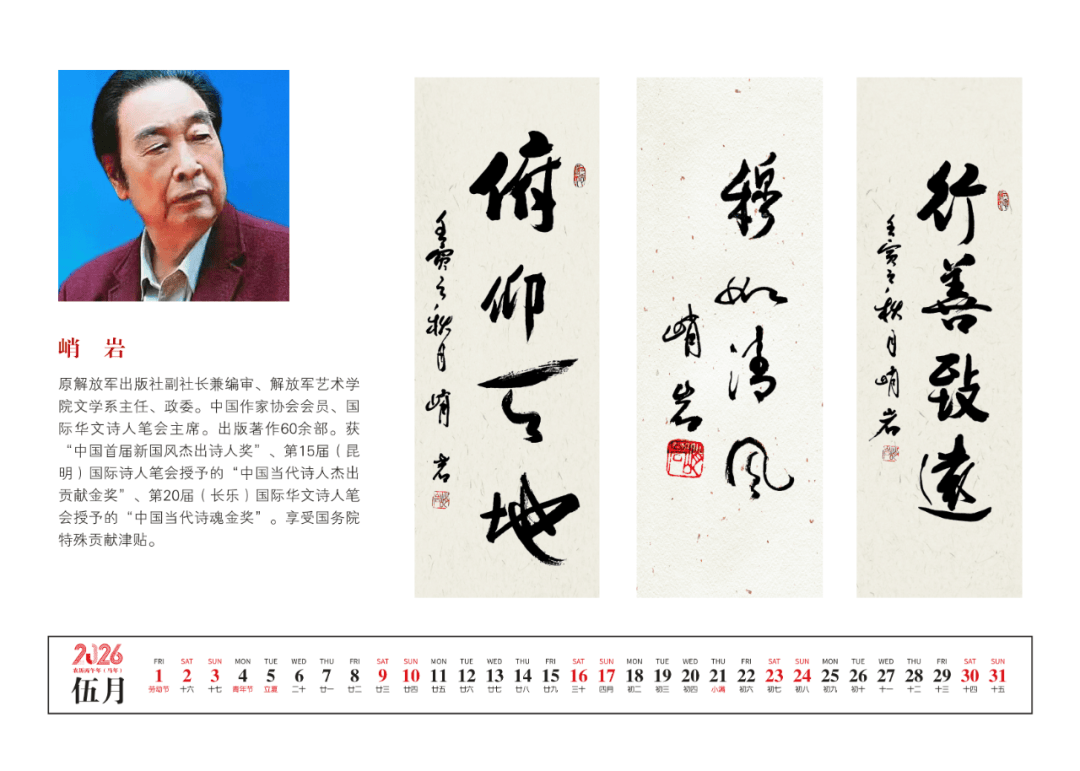 峭 岩
原解放军出版社副社长兼编审、解放军艺术学
院文学系主任、政委。中国作家协会会员、国
际华文诗人笔会主席。出版著作60余部。获
“中国首届新国风杰出诗人奖”、第15届（昆
明）国际诗人笔会授予的“中国当代诗人杰出
贡献金奖”、第20届（长乐）国际华文诗人笔
会授予的“中国当代诗魂金奖”。享受国务院
特殊贡献津贴。
俯仰天地
壬寅之秋月 峭岩
穆如清风
峭岩
行善致远
壬寅之秋月 峭岩
2026
农历丙午年（马年）
伍月
FRI SAT SUN MON TUE WED THU FRI SAT SUN MON TUE WED THU FRI SAT SUN MON TUE WED THU FRI SAT SUN MON TUE WED THU FRI SAT SUN
1 2 3 4 5 6 7 8 9 10 11 12 13 14 15 16 17 18 19 20 21 22 23 24 25 26 27 28 29 30 31
劳动节 十六 十七 青年节 立夏 二十 廿一 廿二 廿三 廿四 廿五 廿六 廿七 廿八 廿九 三十 四月 初二 初三 初四 小满 初六 初七 初八 初九 初十 十一 十二 十三 十四 十五